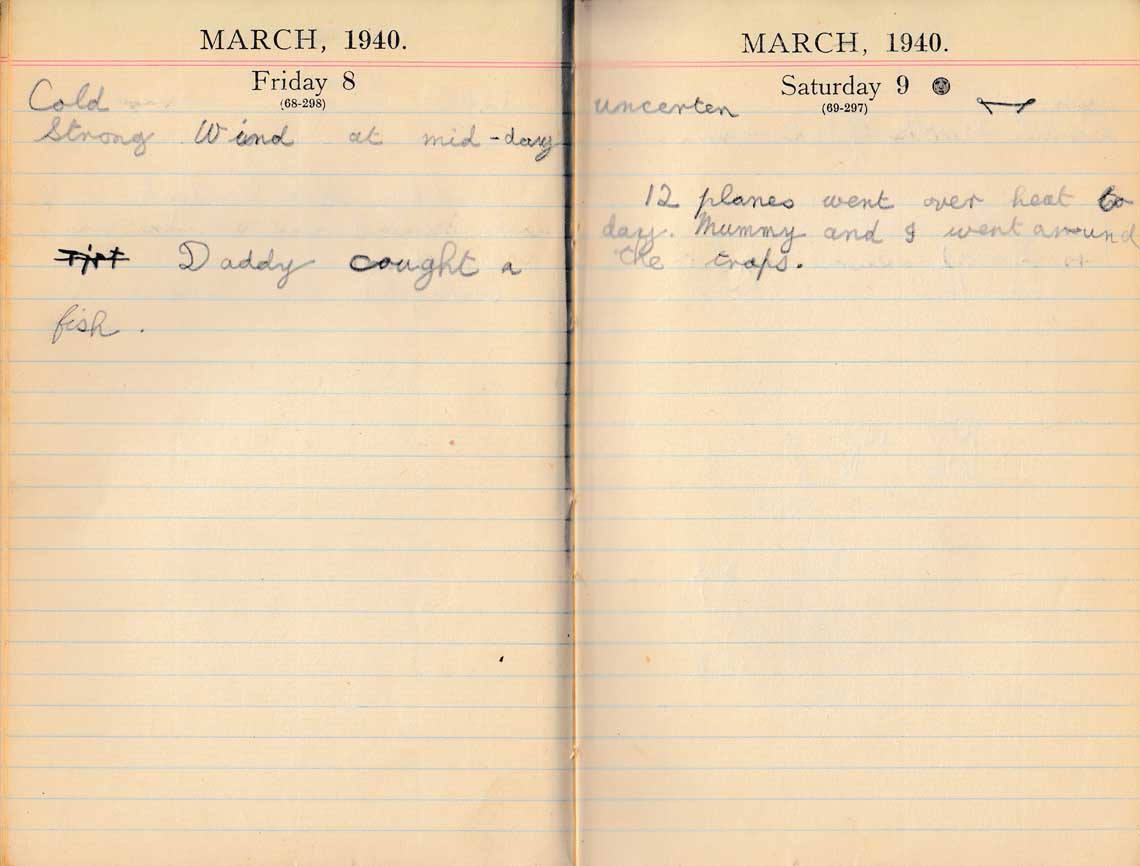 MARCH, 1940.
Friday 8
(68-298)
Cold
Strong Wind at mid-day
Daddy cought a
fish.
MARCH, 1940.
Saturday 9
(69-297)
uncerten
12 planes went over heat to
day. Mummy and I went around
the traps.